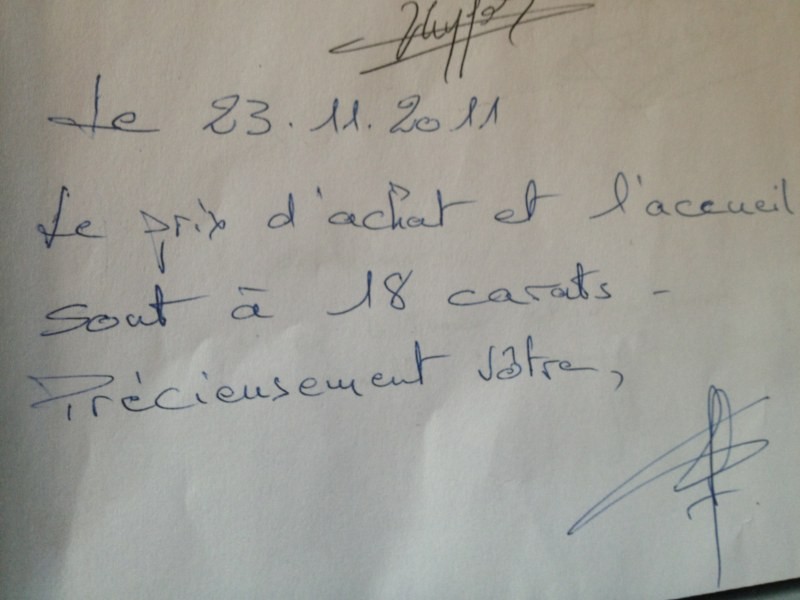 Le 23.11.2011
Le prix d'achat et l'accueil
sont à 18 carats -
Précieusement vôtre,